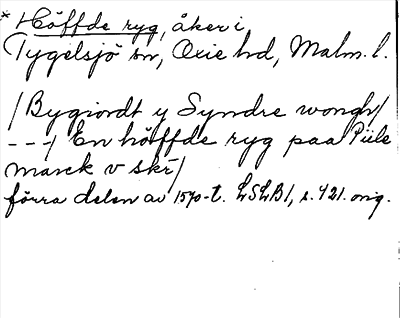 * Höffde ryg, åker i
Tygelsjö sn, Oxie hd, Malm. l.
/Bygiordt y Syndre wongh/
---/ En höffde ryg paa Piile
marck v skr/
förra delen av 1570-t. LSLB1, s. 421. orig.